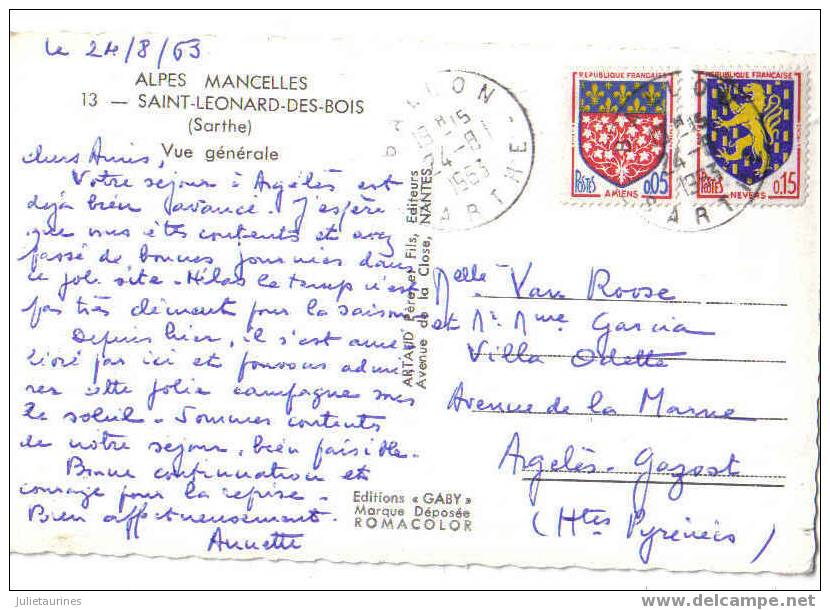 le 24/8/63
ALPES MANCELLES
13 — SAINT-LEONARD-DES-BOIS
(Sarthe)
Vue générale
chers Amis,
Votre séjour à Argelès est
déjà bien avancé. J'espère
que vous êtes contents et avez
passé de bonnes journées dans
ce joli site. Hélas le temps n'est
pas très clément pour la saison
Depuis hier, il s'est amé
lioré par ici et pouvons admi
rer cette jolie campagne sous
le soleil. Sommes contents
de notre séjour, bien paisible.
Bonne continuation et
courage pour la reprise.
Bien affectueusement.
Annette
ARTAUD Père et Fils, Editeurs
Avenue de la Close, NANTES
Editions « GABY »
Marque Déposée
ROMACOLOR
BALLON
18H15
24-8
1963
SARTHE
REPUBLIQUE FRANÇAISE
POSTES
AMIENS
0,05
REPUBLIQUE FRANÇAISE
POSTES
NEVERS
0,15
Melle Van Roose
et Mr. Mme Garcia
Villa Odette
Avenue de la Marne
Argelès-Gazost
(Htes Pyrénées)
Julietaurines
www.delcampe.net